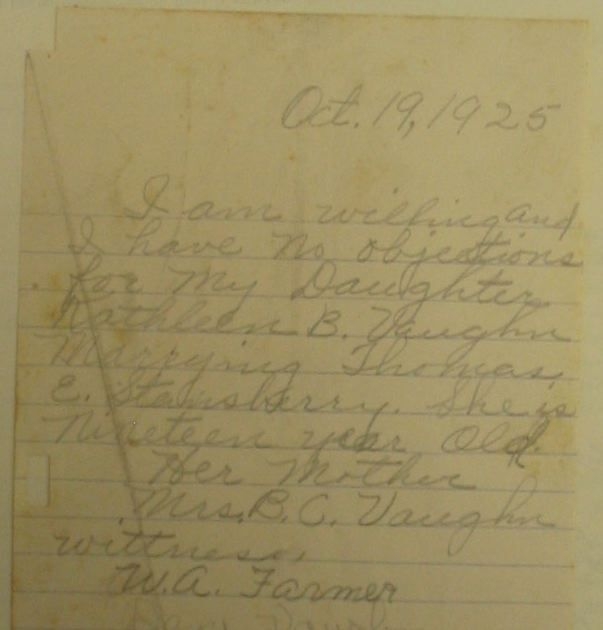 Oct. 19, 1925
I am willing and
I have no objections
for My Daughter
Kathleen B. Vaughn
Marrying Thomas
E. Stansberry. She is
Nineteen year Old.
Her Mother
Mrs. B. C. Vaughn
wittness,
W.A. Farmer